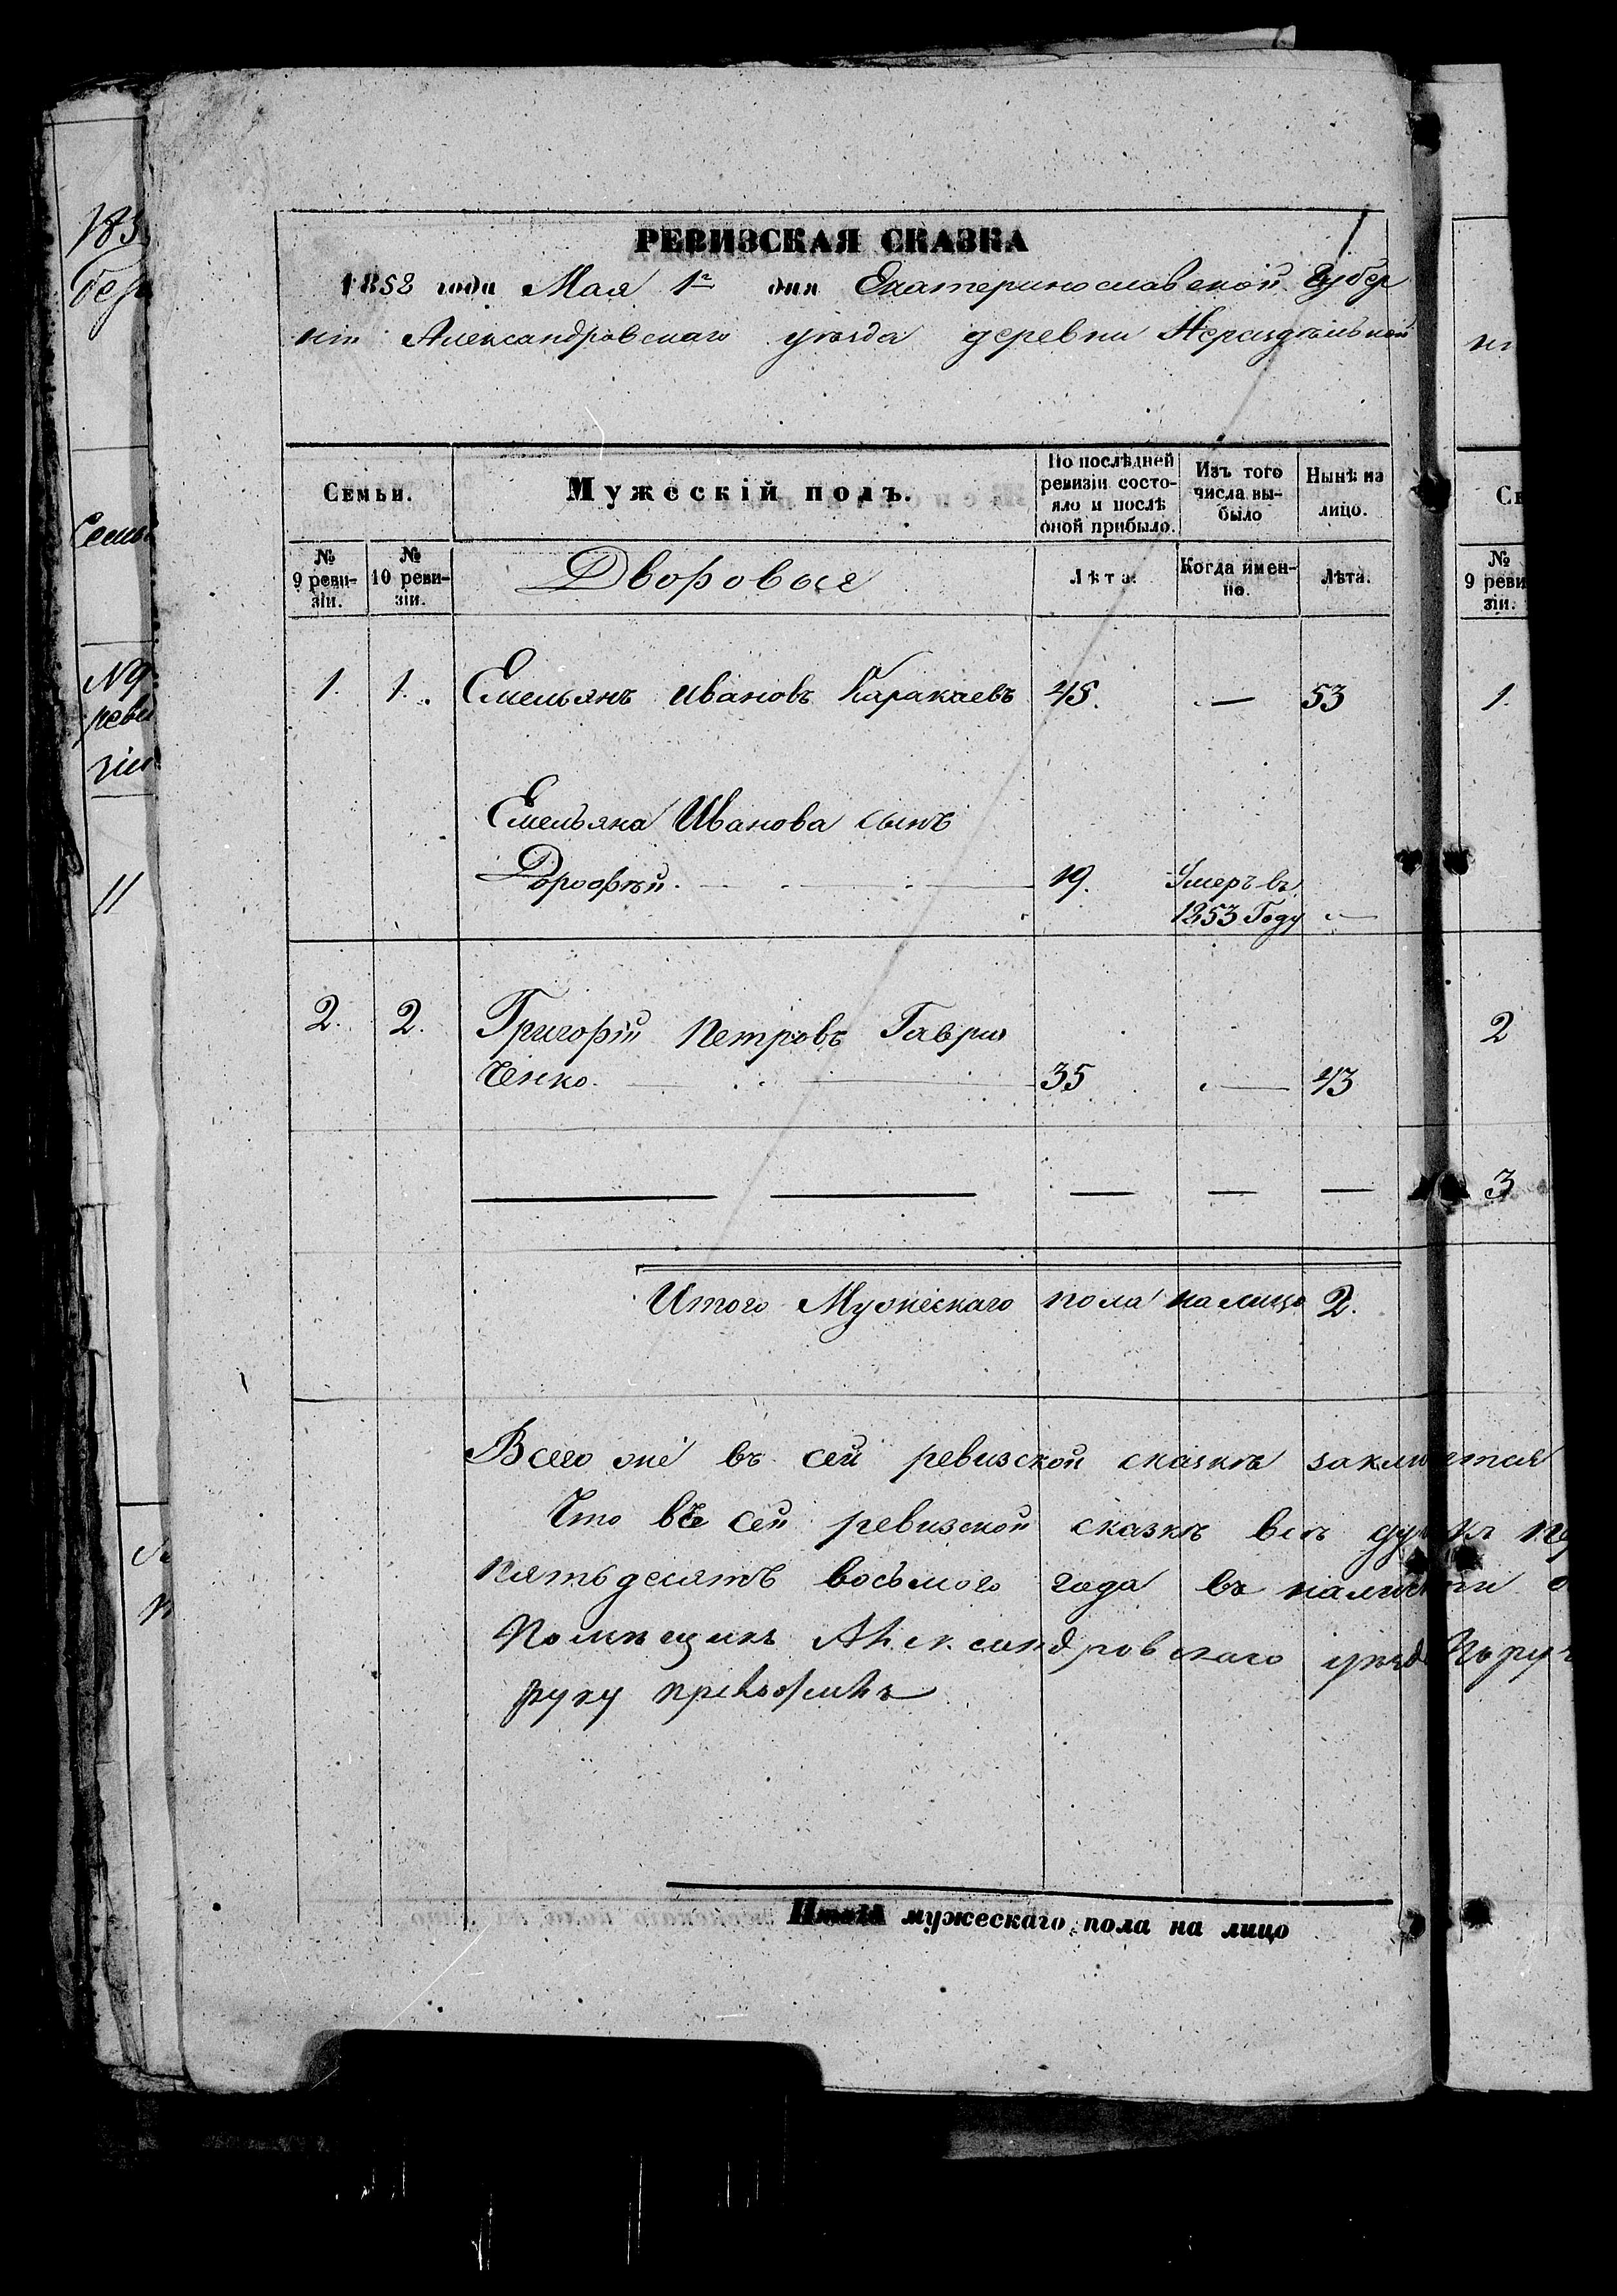 РЕВИЗСКАЯ СКАЗКА
1858 года Мая 1го дня Екатеринославской Губер
ніи Александровскаго уѣзда деревни Нераздѣльной
Семьи.
Мужескій полъ.
По послѣдней ревизіи состо-
яло и послѣ оной прибыло.
Изъ того числа вы-
было
Нынѣ на лицо.
№ 9 реви-
зіи.
№ 10 реви-
зіи.
Дворовые
Лѣта.
Когда имен-
но.
Лѣта.
1. 1. Емельянъ Ивановъ Каракаевъ 45. — 53
Емельяна Иванова сынъ
Дорофѣй. 19. Умеръ въ
1853 Году —
2. 2. Григорій Петровъ Гаври
ченко. 35 — 43
Итого Мужескаго пола на лицо 2.
Всего же въ сей ревизской сказкѣ
Что въ сей ревизской сказкѣ всѣ
пятьдесятъ восьмого года въ
Помѣщикъ Александровскаго
руку приложилъ
Итого мужескаго пола на лицо
183
Семьи
№ 9
реви
зіи
11
№
9 реви
зіи.
1.
2
3